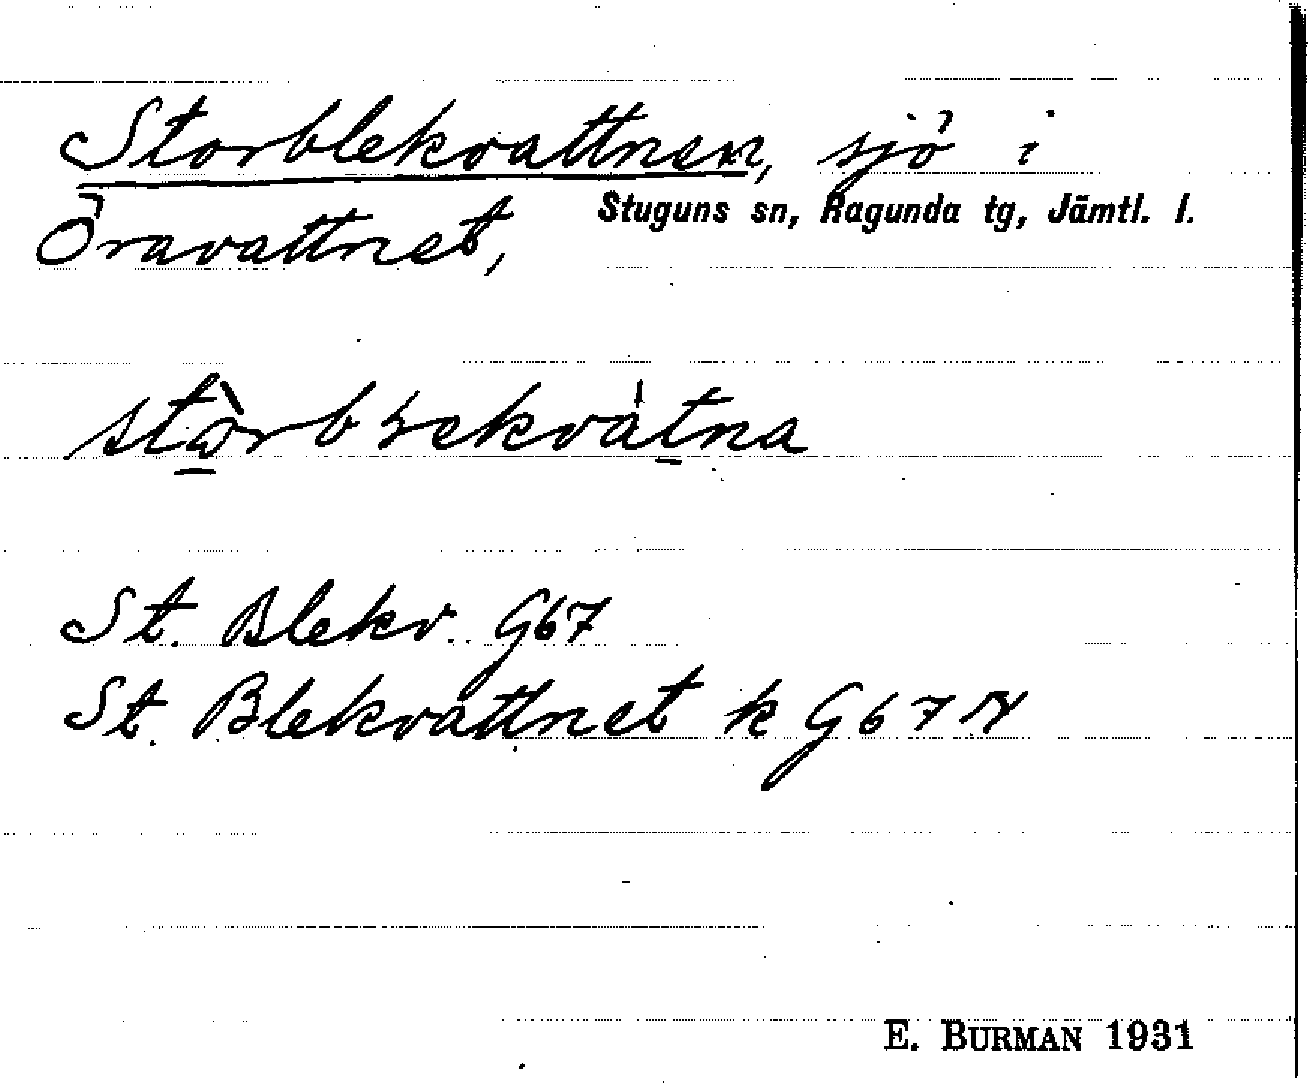 Storblekvattnen, sjö i
Stuguns sn, Ragunda tg, Jämtl. l.
Öravattnet,
St. Blekv. G67
St. Blekvattnet k G67N
E. BURMAN 1931